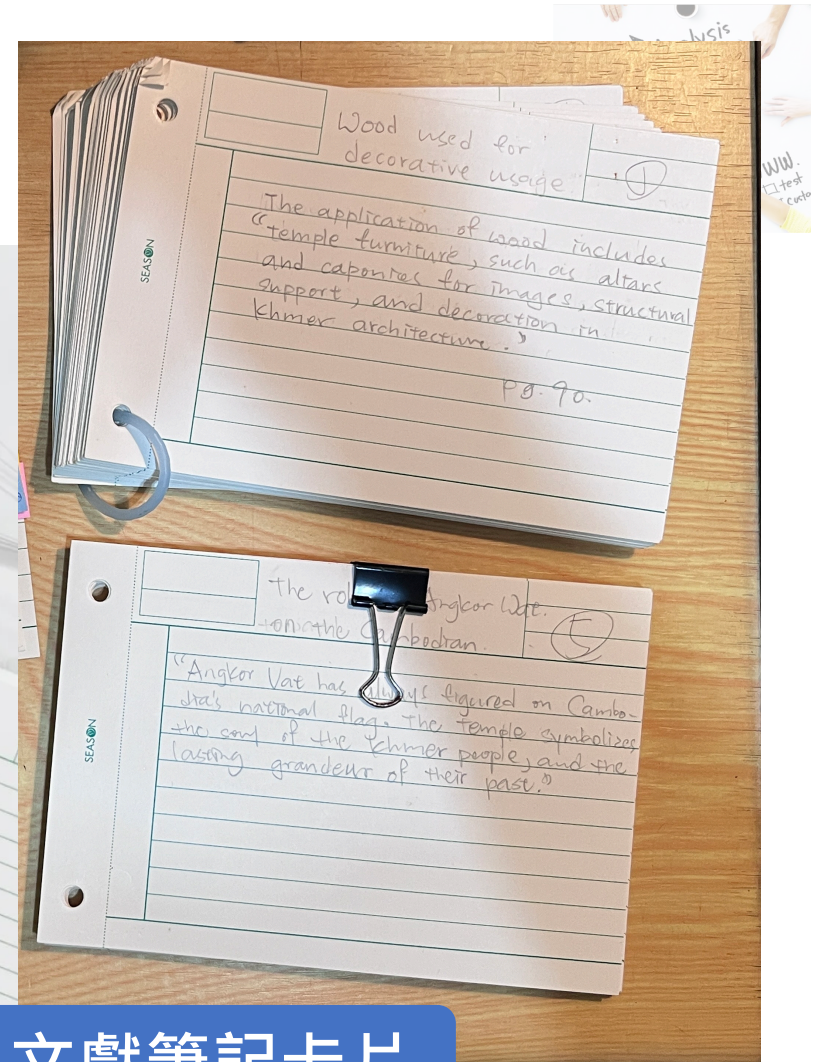 alysis
WW.
test
custo
Wood used for
decorative usage
1
The application of wood includes
"temple furniture, such as altars
and canopies for images, structural
support, and decoration in
Khmer architecture."
pg. 90.
SEASON
the ro Angkor Wat.
on the Cambodian.
5
"Angkor Vat has always figured on Cambo-
dia's national flag. The temple symbolizes
the soul of the Khmer people, and the
lasting grandeur of their past."
SEASON
文獻筆記卡片